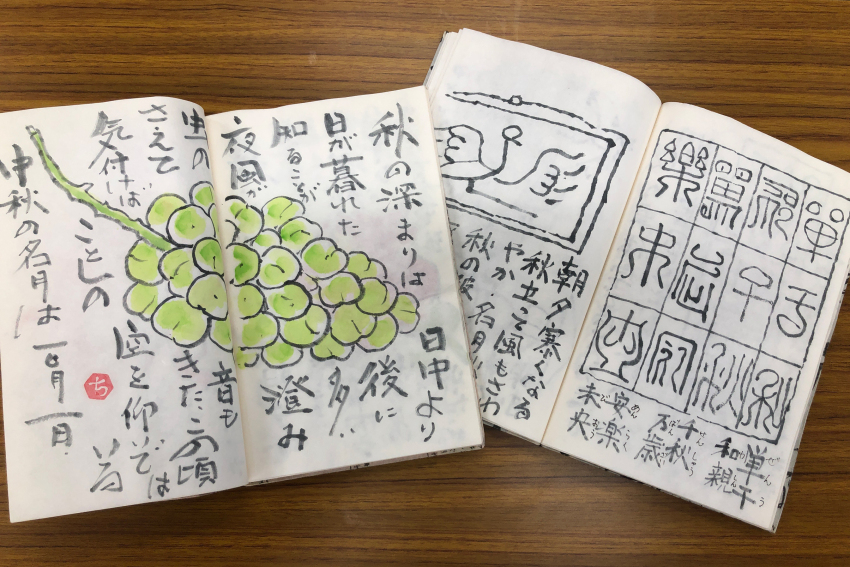 秋の深まりは
日中より
日が暮れた
後に
知ることが
多い
夜風が
澄み
虫の
音も
さえて
きた、この頃
気付けば
空を仰いでは
いる
ことしの
中秋の名月は 一〇月一日
ち
朝夕寒くなる
秋立って風もさわ
やか、名月
秋の夜
單于和
親千秋
萬歳安
樂未央
単于 ぜんう
和親 わしん
千秋 せんしゅう
万歳
安楽
未央 びおう